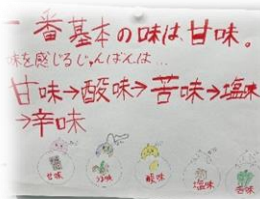 一番基本の味は甘味。
味を感じるじゅんばんは…
甘味→酸味→苦味→塩味
→辛味
甘味
酸味
塩味
苦味